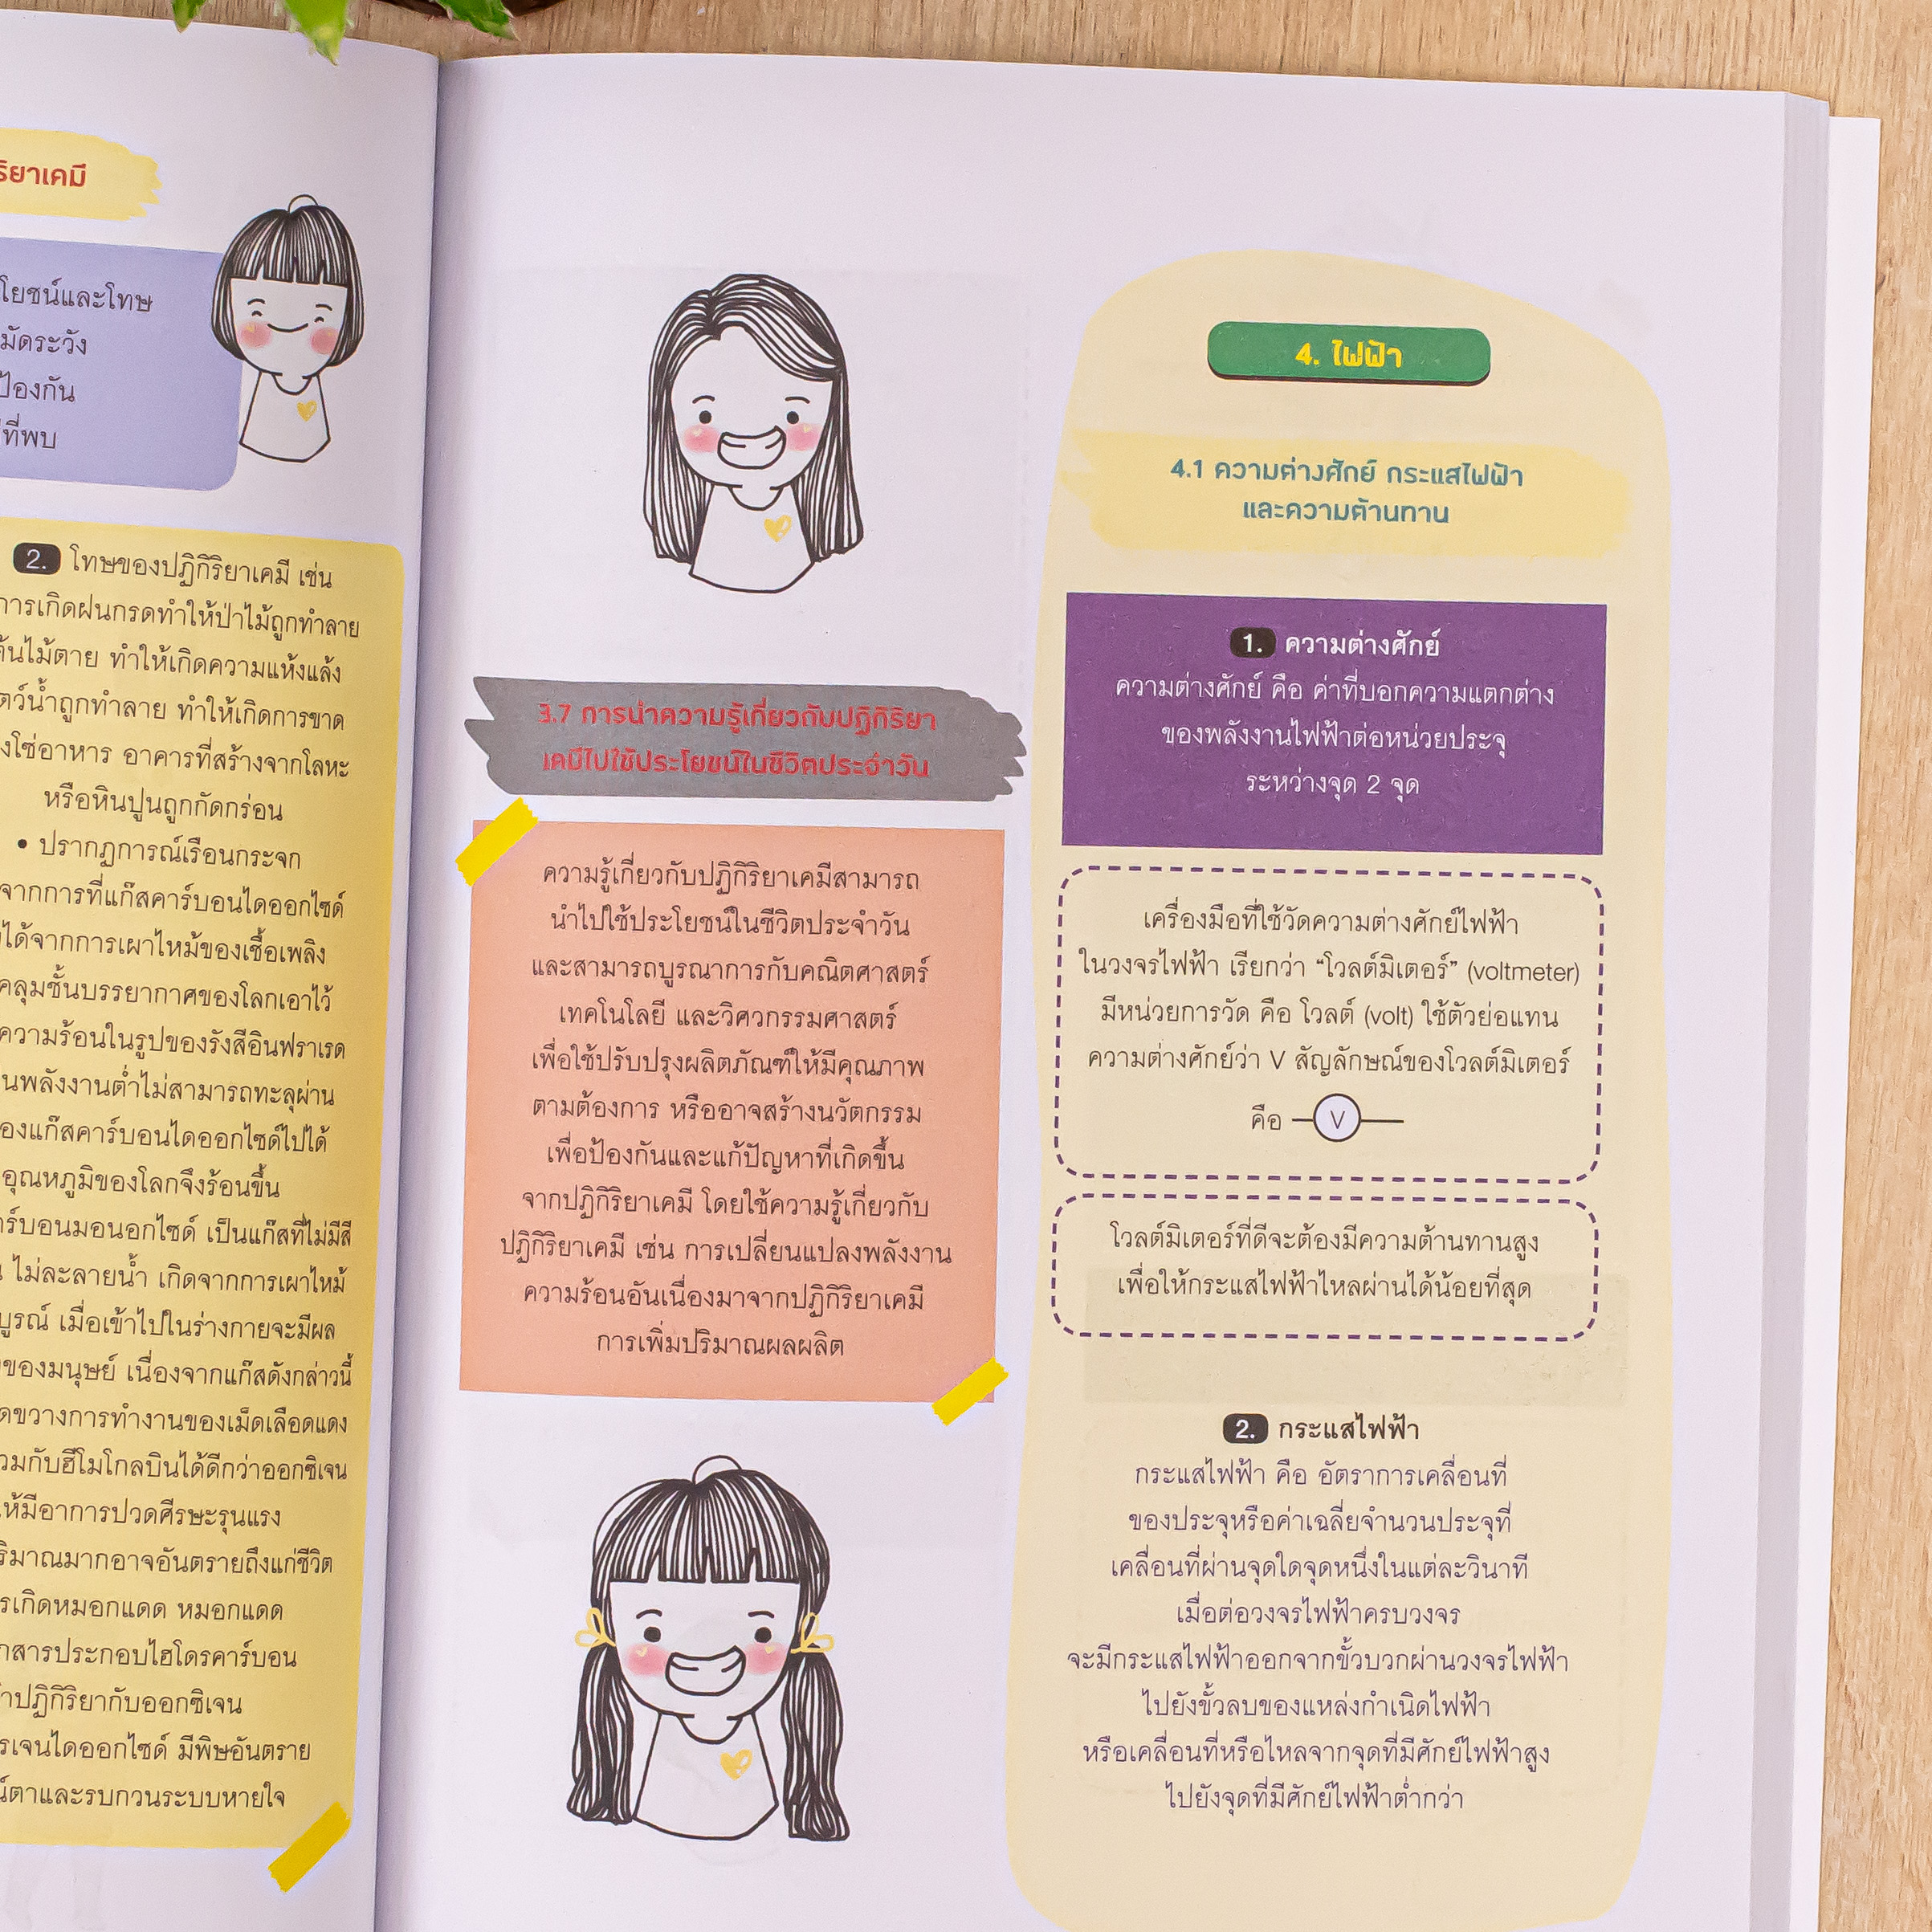 โยชน์และโทษ
ป้องกัน
ที่พบ
2. โทษของปฏิกิริยาเคมี เช่น
การเกิดฝนกรดทำให้ป่าไม้ถูกทำลาย
ต้นไม้ตาย ทำให้เกิดความแห้งแล้ง
ถูกทำลาย ทำให้เกิดการขาด
โซ่อาหาร อาคารที่สร้างจากโลหะ
หรือหินปูนถูกกัดกร่อน
• ปรากฏการณ์เรือนกระจก
จากการที่แก๊สคาร์บอนไดออกไซด์
ได้จากการเผาไหม้ของเชื้อเพลิง
คลุมชั้นบรรยากาศของโลกเอาไว้
ความร้อนในรูปของรังสีอินฟราเรด
พลังงานต่ำไม่สามารถทะลุผ่าน
ของแก๊สคาร์บอนไดออกไซด์ไปได้
อุณหภูมิของโลกจึงร้อนขึ้น
มอนอกไซด์ เป็นแก๊สที่ไม่มีสี
ไม่ละลายน้ำ เกิดจากการเผาไหม้
เมื่อเข้าไปในร่างกายจะมีผล
ของมนุษย์ เนื่องจากแก๊สดังกล่าวนี้
ขวางการทำงานของเม็ดเลือดแดง
กับฮีโมโกลบินได้ดีกว่าออกซิเจน
ให้มีอาการปวดศีรษะรุนแรง
ริมาณมากอาจอันตรายถึงแก่ชีวิต
เกิดหมอกแดด หมอกแดด
สารประกอบไฮโดรคาร์บอน
ปฏิกิริยากับออกซิเจน
รเจนไดออกไซด์ มีพิษอันตราย
ตาและรบกวนระบบหายใจ
3.7 การนำความรู้เกี่ยวกับปฏิกิริยา
เคมีไปใช้ประโยชน์ในชีวิตประจำวัน
ความรู้เกี่ยวกับปฏิกิริยาเคมีสามารถ
นำไปใช้ประโยชน์ในชีวิตประจำวัน
และสามารถบูรณาการกับคณิตศาสตร์
เทคโนโลยี และวิศวกรรมศาสตร์
เพื่อใช้ปรับปรุงผลิตภัณฑ์ให้มีคุณภาพ
ตามต้องการ หรืออาจสร้างนวัตกรรม
เพื่อป้องกันและแก้ปัญหาที่เกิดขึ้น
จากปฏิกิริยาเคมี โดยใช้ความรู้เกี่ยวกับ
ปฏิกิริยาเคมี เช่น การเปลี่ยนแปลงพลังงาน
ความร้อนอันเนื่องมาจากปฏิกิริยาเคมี
การเพิ่มปริมาณผลผลิต
4. ไฟฟ้า
4.1 ความต่างศักย์ กระแสไฟฟ้า
และความต้านทาน
1. ความต่างศักย์
ความต่างศักย์ คือ ค่าที่บอกความแตกต่าง
ของพลังงานไฟฟ้าต่อหน่วยประจุ
ระหว่างจุด 2 จุด
เครื่องมือที่ใช้วัดความต่างศักย์ไฟฟ้า
ในวงจรไฟฟ้า เรียกว่า “โวลต์มิเตอร์” (voltmeter)
มีหน่วยการวัด คือ โวลต์ (volt) ใช้ตัวย่อแทน
ความต่างศักย์ว่า V สัญลักษณ์ของโวลต์มิเตอร์
คือ V
โวลต์มิเตอร์ที่ดีจะต้องมีความต้านทานสูง
เพื่อให้กระแสไฟฟ้าไหลผ่านได้น้อยที่สุด
2. กระแสไฟฟ้า
กระแสไฟฟ้า คือ อัตราการเคลื่อนที่
ของประจุหรือค่าเฉลี่ยจำนวนประจุที่
เคลื่อนที่ผ่านจุดใดจุดหนึ่งในแต่ละวินาที
เมื่อต่อวงจรไฟฟ้าครบวงจร
จะมีกระแสไฟฟ้าออกจากขั้วบวกผ่านวงจรไฟฟ้า
ไปยังขั้วลบของแหล่งกำเนิดไฟฟ้า
หรือเคลื่อนที่หรือไหลจากจุดที่มีศักย์ไฟฟ้าสูง
ไปยังจุดที่มีศักย์ไฟฟ้าต่ำกว่า